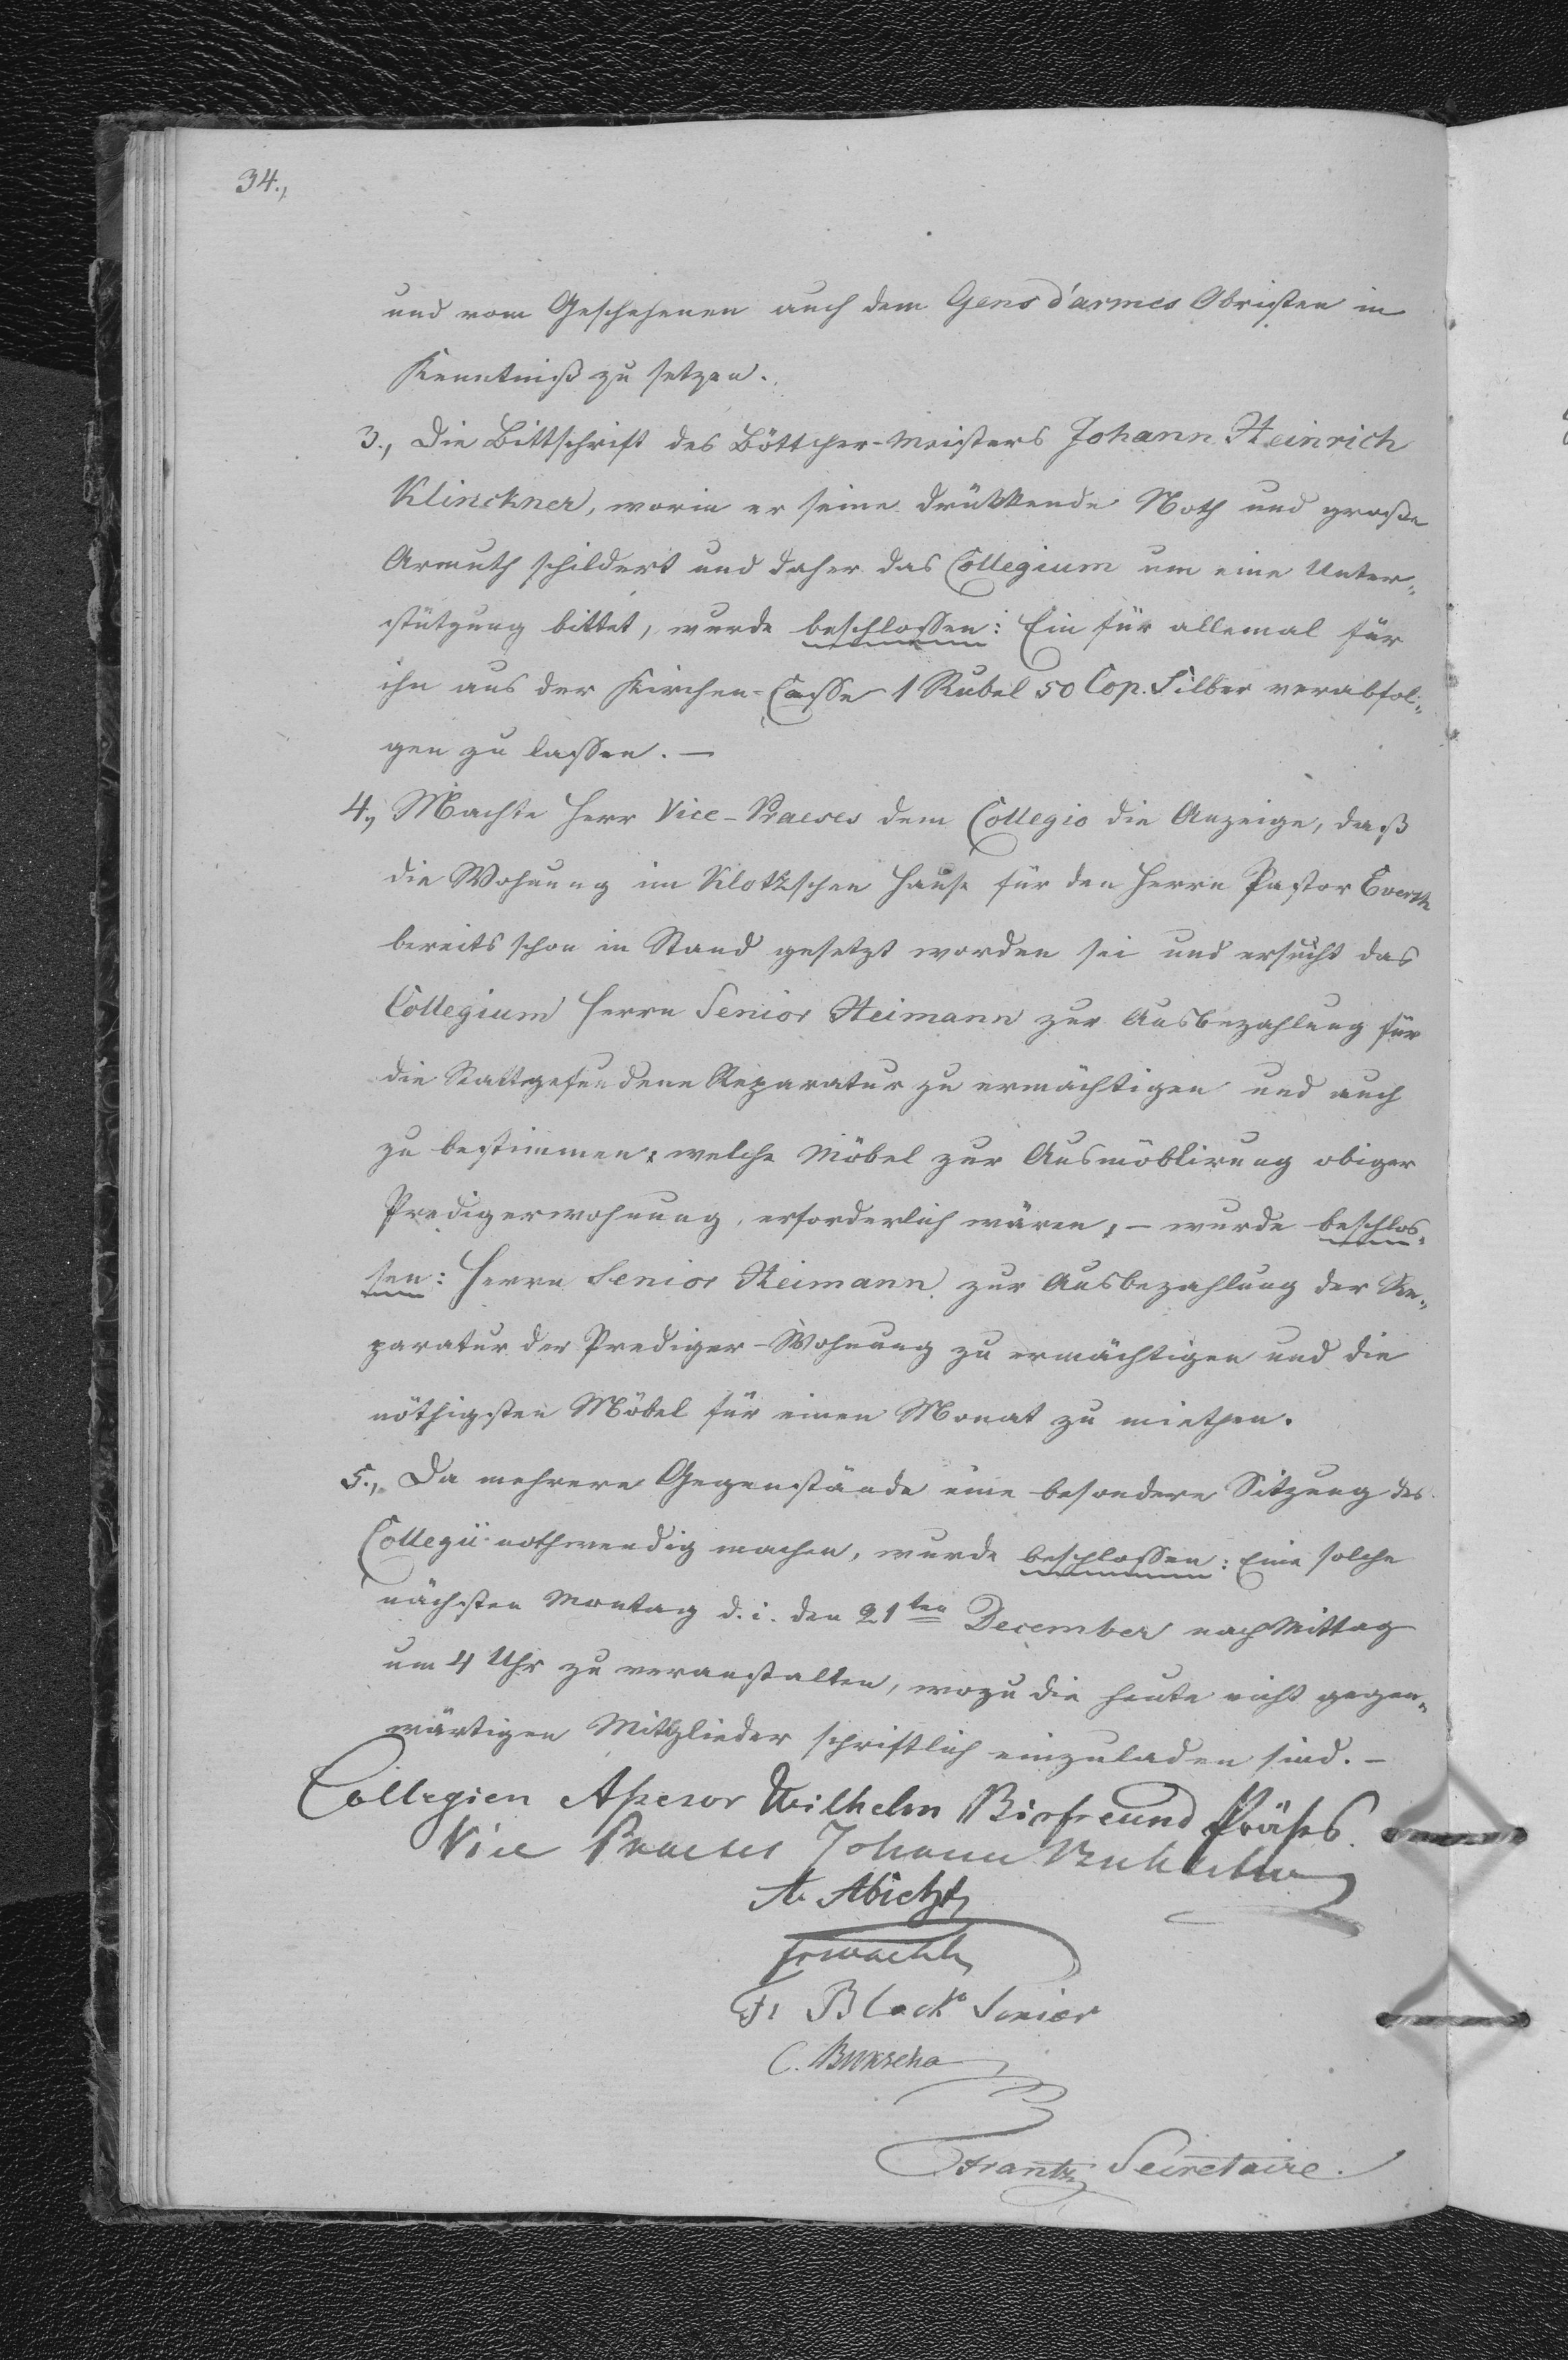 34.,
und vom Geschehenen auch dem Gens d'armes Obristen in
Kenntniß zu setzen.
3., Die Bittschrift des Böttcher-Meisters Johann Heinrich
Klinckner, worin er seine drükkende Noth und große
Armuth schildert und daher das Collegium um eine Unter„
stützung bittet, wurde beschlossen: Ein für allemal für
ihn aus der Kirchen-Casse 1 Rubel 50 Cop. Silber verabfol„
gen zu lassen. —
4., Machte Herr Vice-Praeses dem Collegio die Anzeige, daß
die Wohnung im Klotzschen Hause für den Herrn Pastor Everth
bereits schon in Stand gesetzt worden sei und ersucht das
Collegium Herrn Senior Heimann zur Ausbezahlung für
die Stattgefundene Reparatur zu ermächtigen und auch
zu bestimmen, welche Möbel zur Ausmöblirung obiger
Predigerwohnung, erforderlich wären, — wurde beschlos„
sen: Herrn Senior Heimann zur Ausbezahlung der Re„
paratur der Prediger-Wohnung zu ermächtigen und die
nöthigsten Möbel für einen Monat zu miethen.
5., Da mehrere Gegenstände eine besondere Sitzung des
Collegii nothwendig machen, wurde beschlossen: Eine solche
nächsten Montag d. i. den 21ten December nachMittag
um 4 Uhr zu veranstalten, wozu die heute nicht gegen„
wärtigen Mitglieder schriftlich einzuladen sind. —
Collegien Assesor Wilhelm Birfreund Präses.
Vice Praeses Johann
A. Abicht
F. Block Senior
C. Bukscha
Frantz Secretaire.